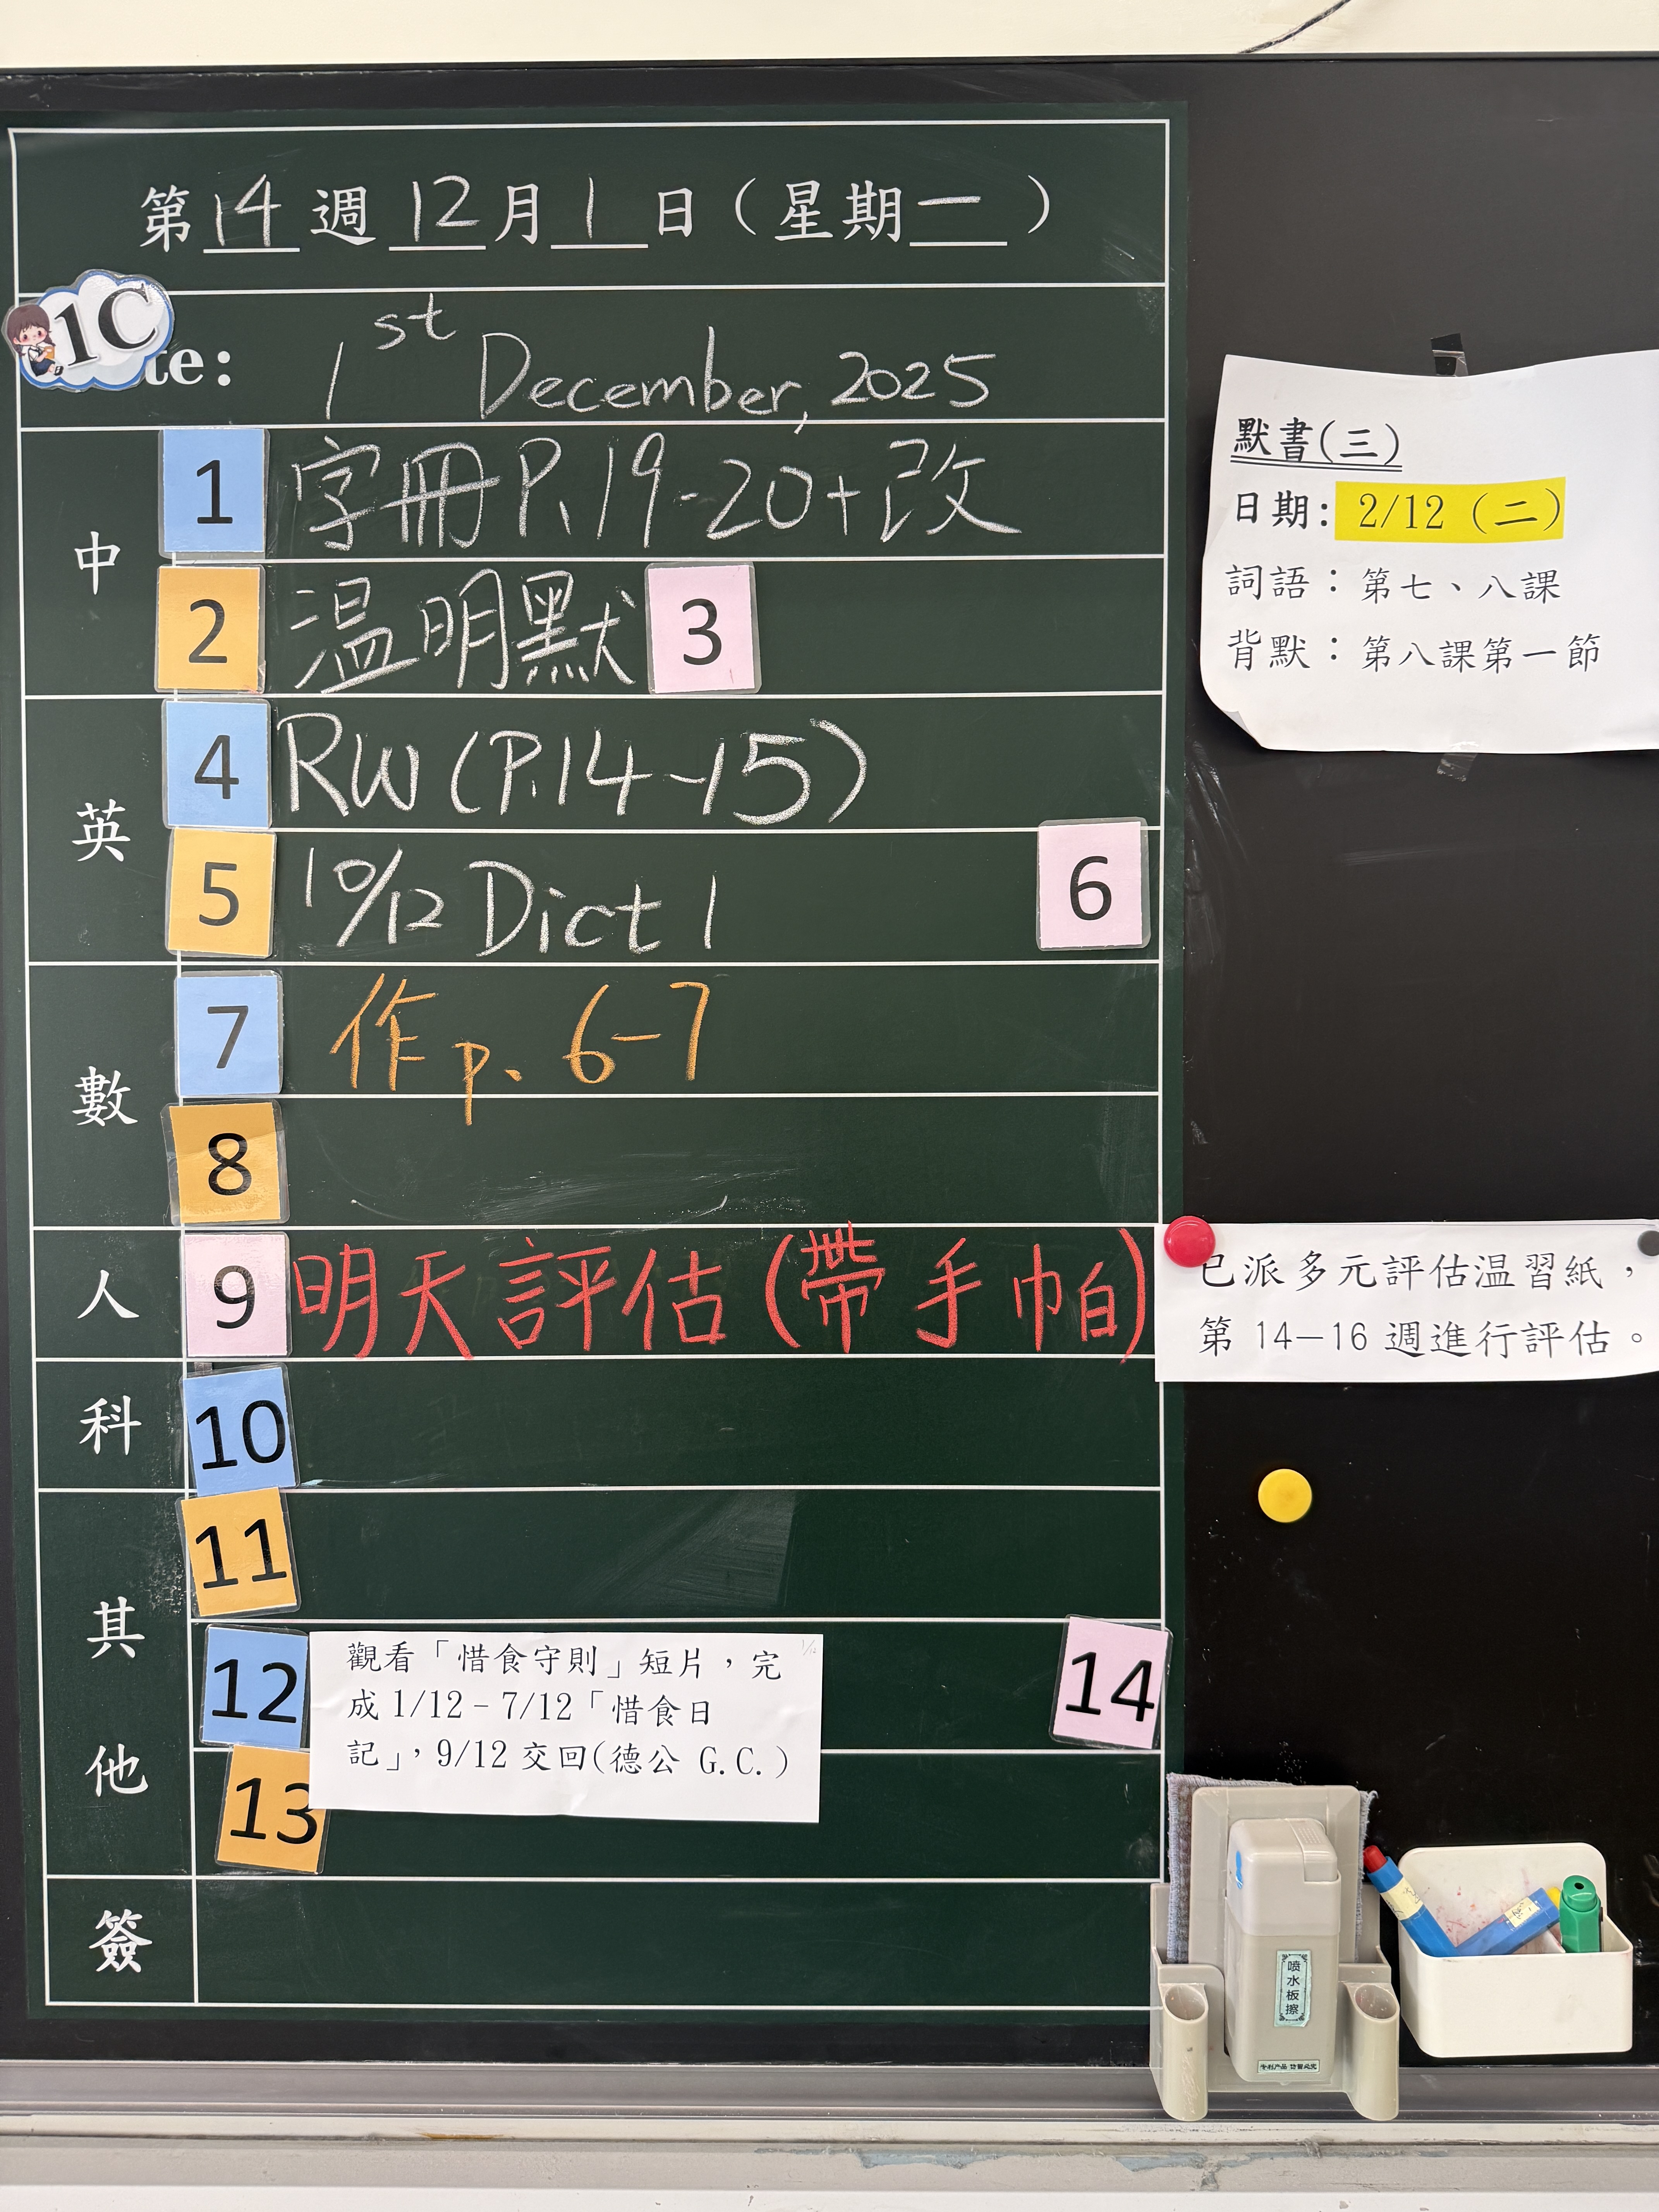 第 14 週 12 月 1 日（星期一）
1C
te: 1st December, 2025
中
1 字冊P.19-20+改
2 温明默 3
英
4 RW (P.14-15)
5 10/12 Dict 1 6
數
7 作 p. 6-7
8
人
9 明天評估(帶手帕)
科
10
11
其他
12 觀看「惜食守則」短片，完 1/12
成 1/12–7/12「惜食日
記」，9/12 交回(德公 G.C.)
14
13
簽
默書(三)
日期: 2/12 (二)
詞語：第七、八課
背默：第八課第一節
已派多元評估温習紙，
第 14—16 週進行評估。
喷水板擦
专利产品 仿冒必究